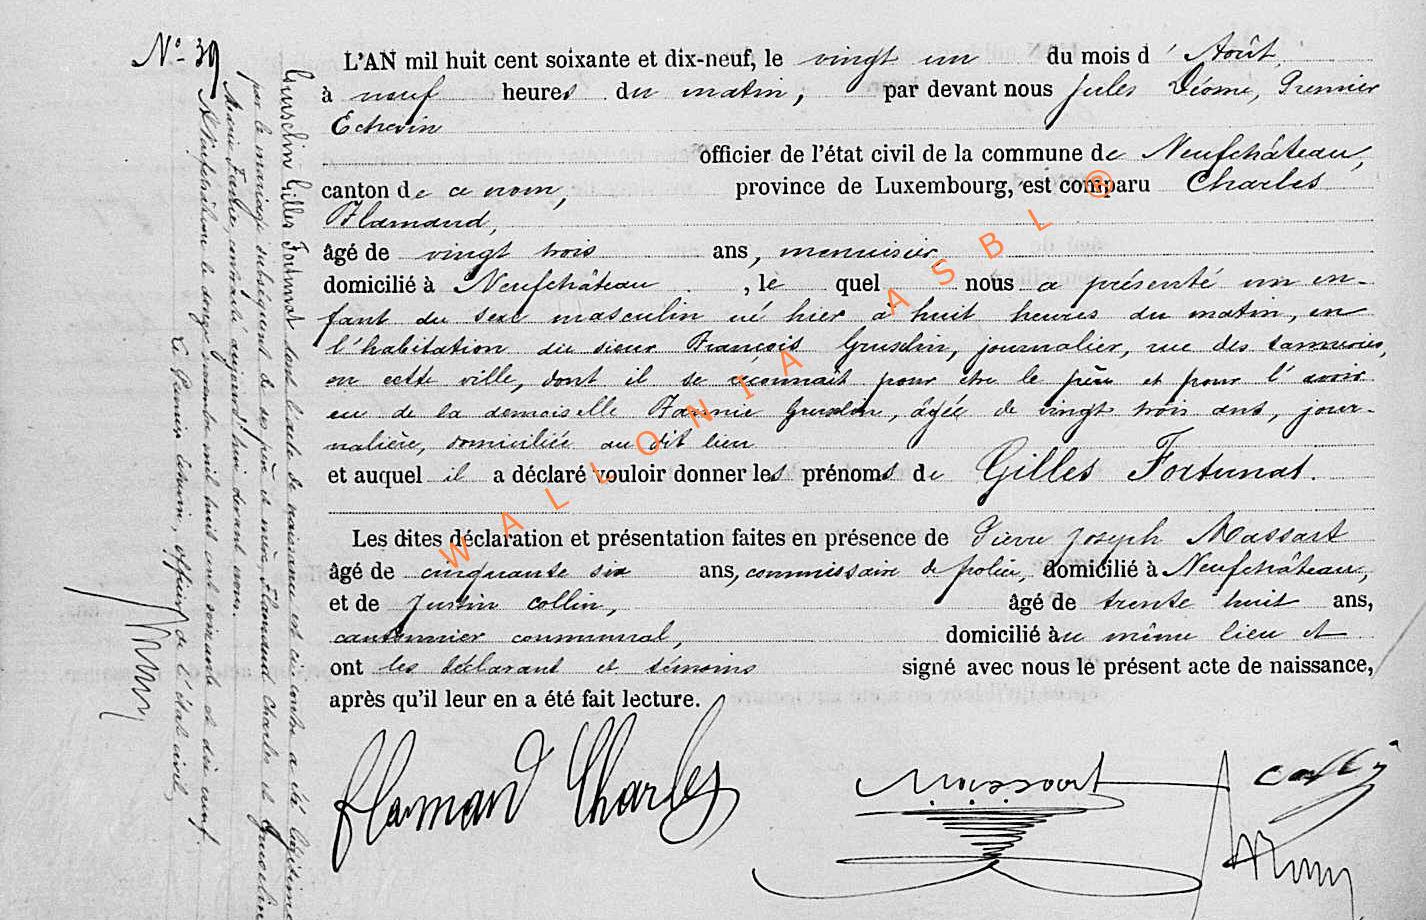 N.° 39
L'AN mil huit cent soixante et dix-neuf, le vingt un du mois d'Août,
à neuf heures du matin, par devant nous Jules Déome, Premier
Echevin
officier de l'état civil de la commune de Neufchâteau,
canton de ce nom, province de Luxembourg, est comparu Charles
Flamand,
âgé de vingt trois ans, menuisier,
domicilié à Neufchâteau, le quel nous a présenté un en-
fant du sexe masculin né hier à huit heures du matin, en
l'habitation du sieur François Gruslin, journalier, rue des tanneries,
en cette ville, dont il se reconnait pour être le père et pour l'avoir
eu de la demoiselle Fannie Gruslin, âgée de vingt trois ans, jour-
nalière, domiciliée au dit lieu
et auquel il a déclaré vouloir donner les prénoms de Gilles Fortunat.
Les dites déclaration et présentation faites en présence de Pierre Joseph Massart
âgé de cinquante six ans, commissaire de police, domicilié à Neufchâteau,
et de Justin Collin, âgé de trente huit ans,
cantonnier communal, domicilié au même lieu et
ont les déclarant et témoins signé avec nous le présent acte de naissance,
après qu'il leur en a été fait lecture.
Flamand Charles
Massart
Collin
Gilles Fortunat dont l'acte de naissance est ci contre a été légitimé
par le mariage subséquent de ses père et mère, Flamand Charles et Gruslin
Marie, contracté aujourd'hui devant nous.
A Neufchâteau le douze novembre mil huit cent soixante et dix neuf.
Le Premier Echevin, officier de l'état civil,
WALLONIA ASBL ®